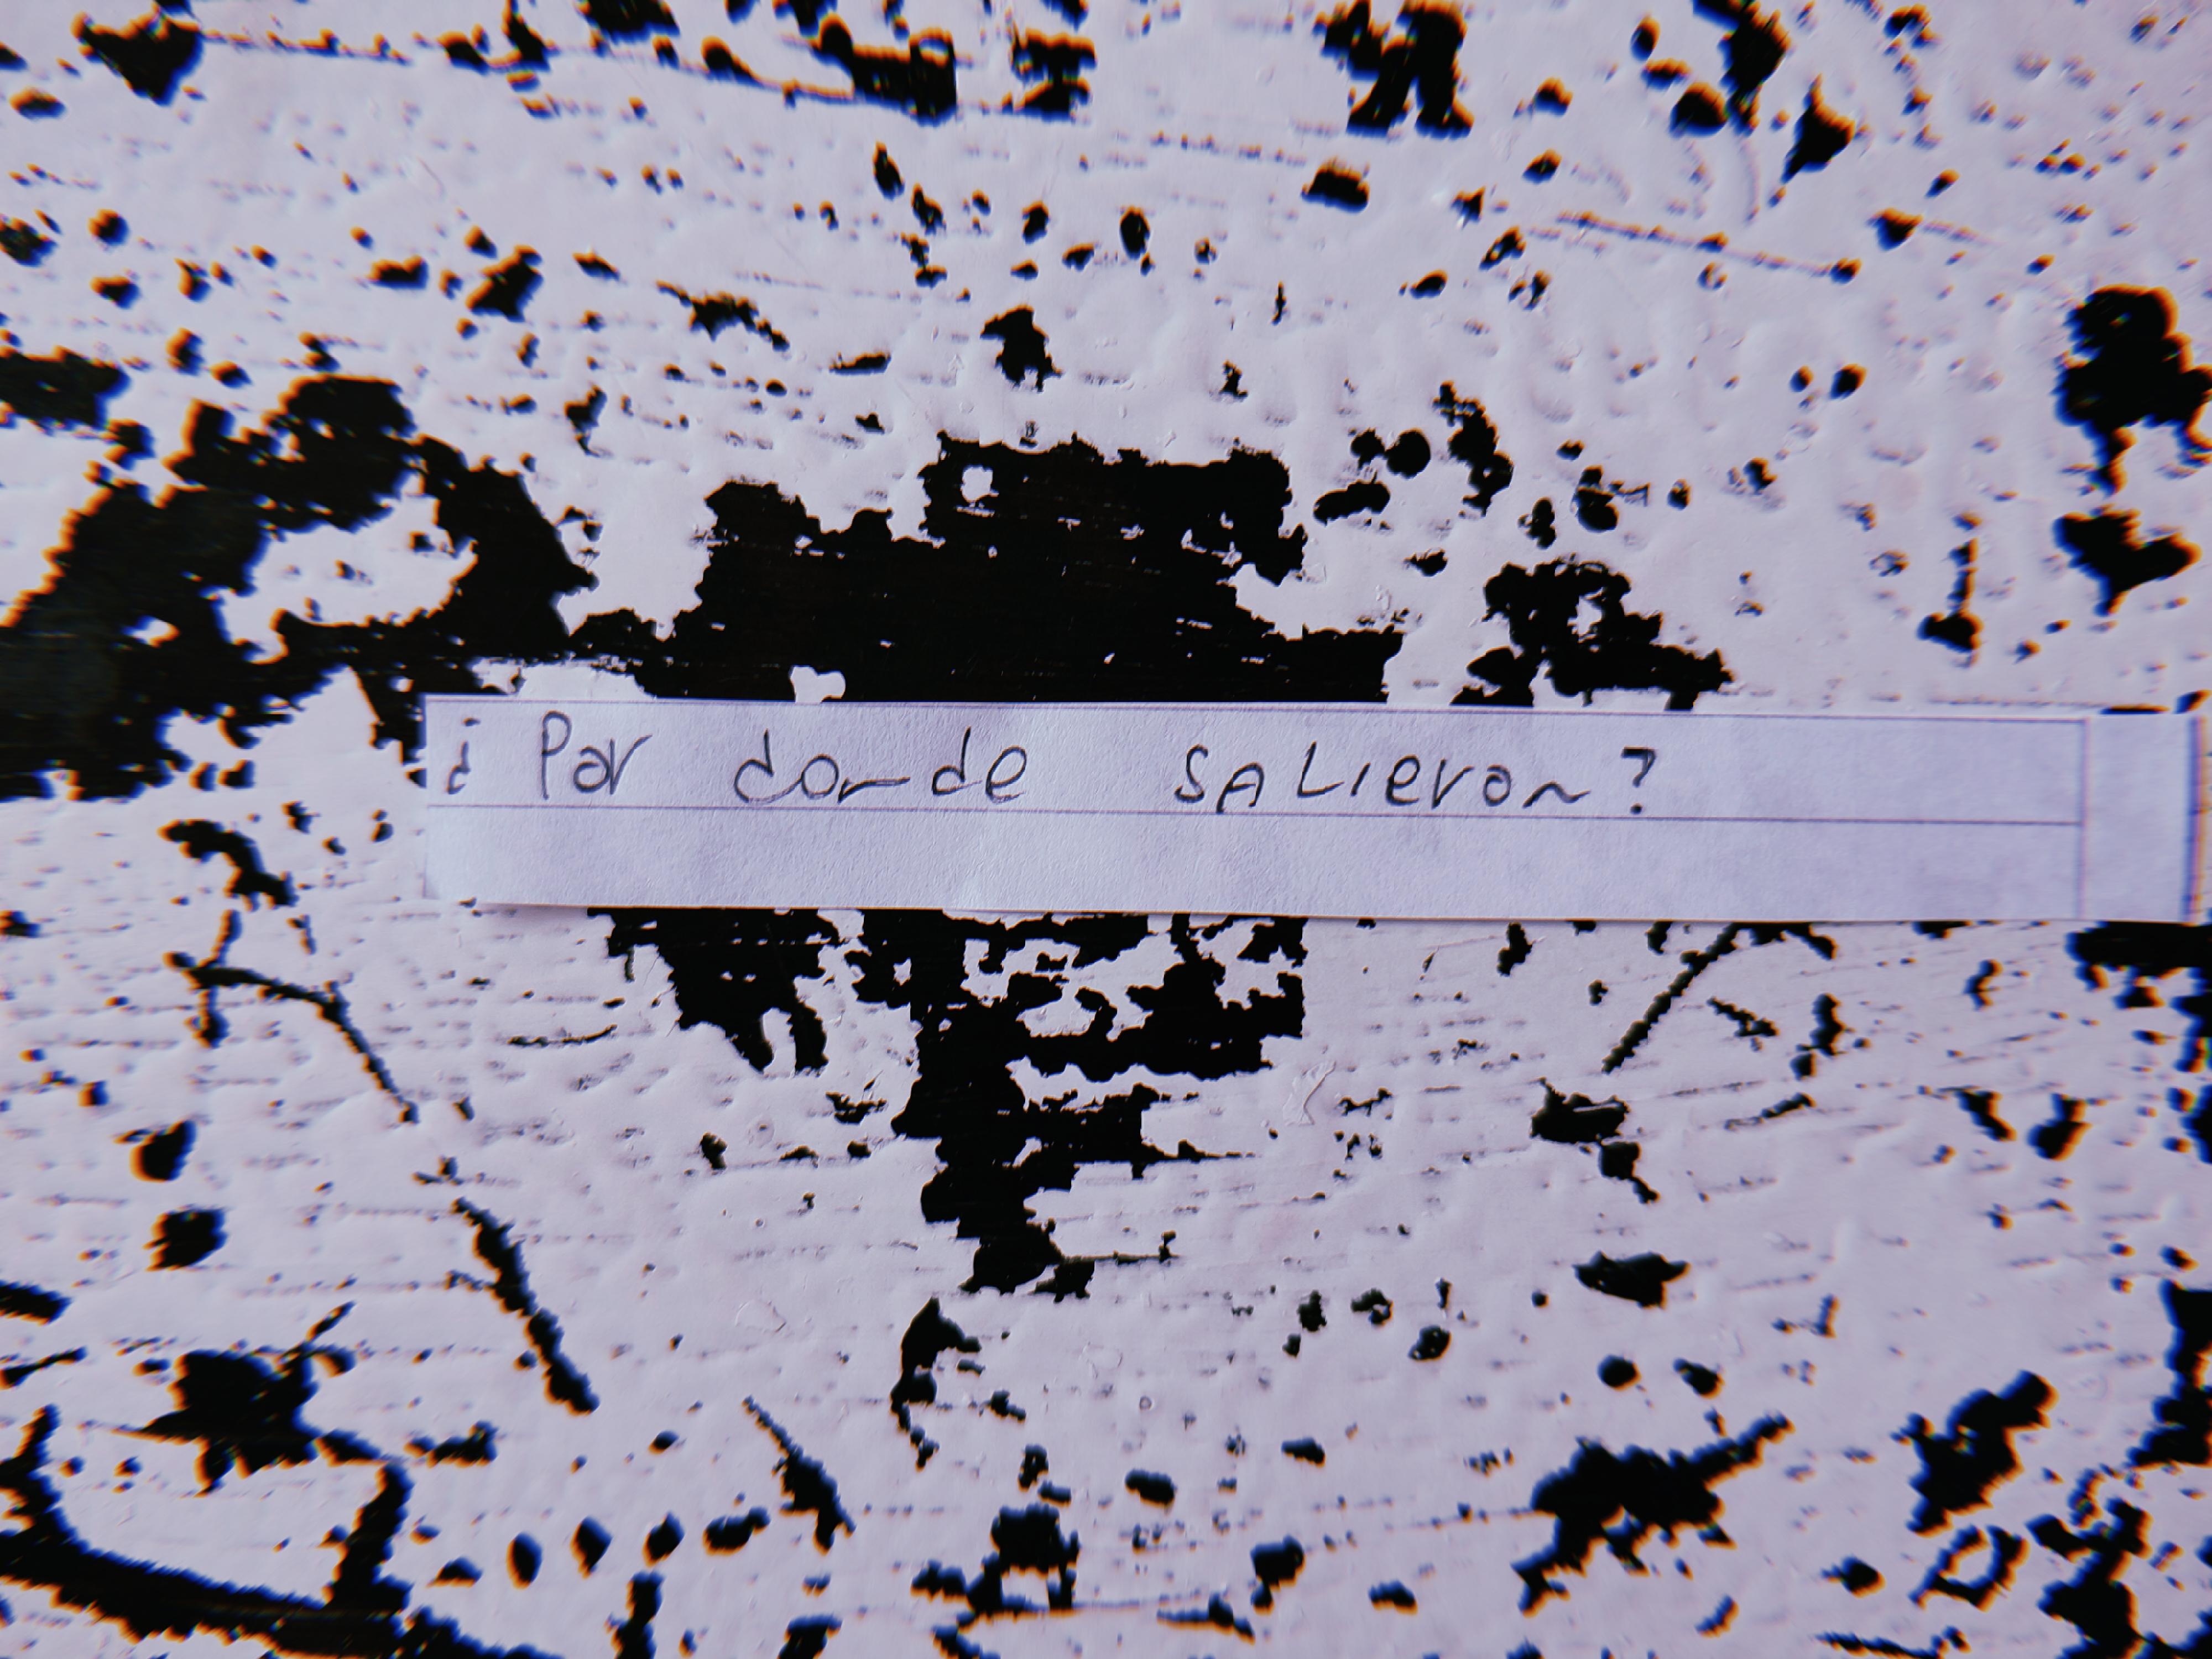 ¿Por donde SALieron?